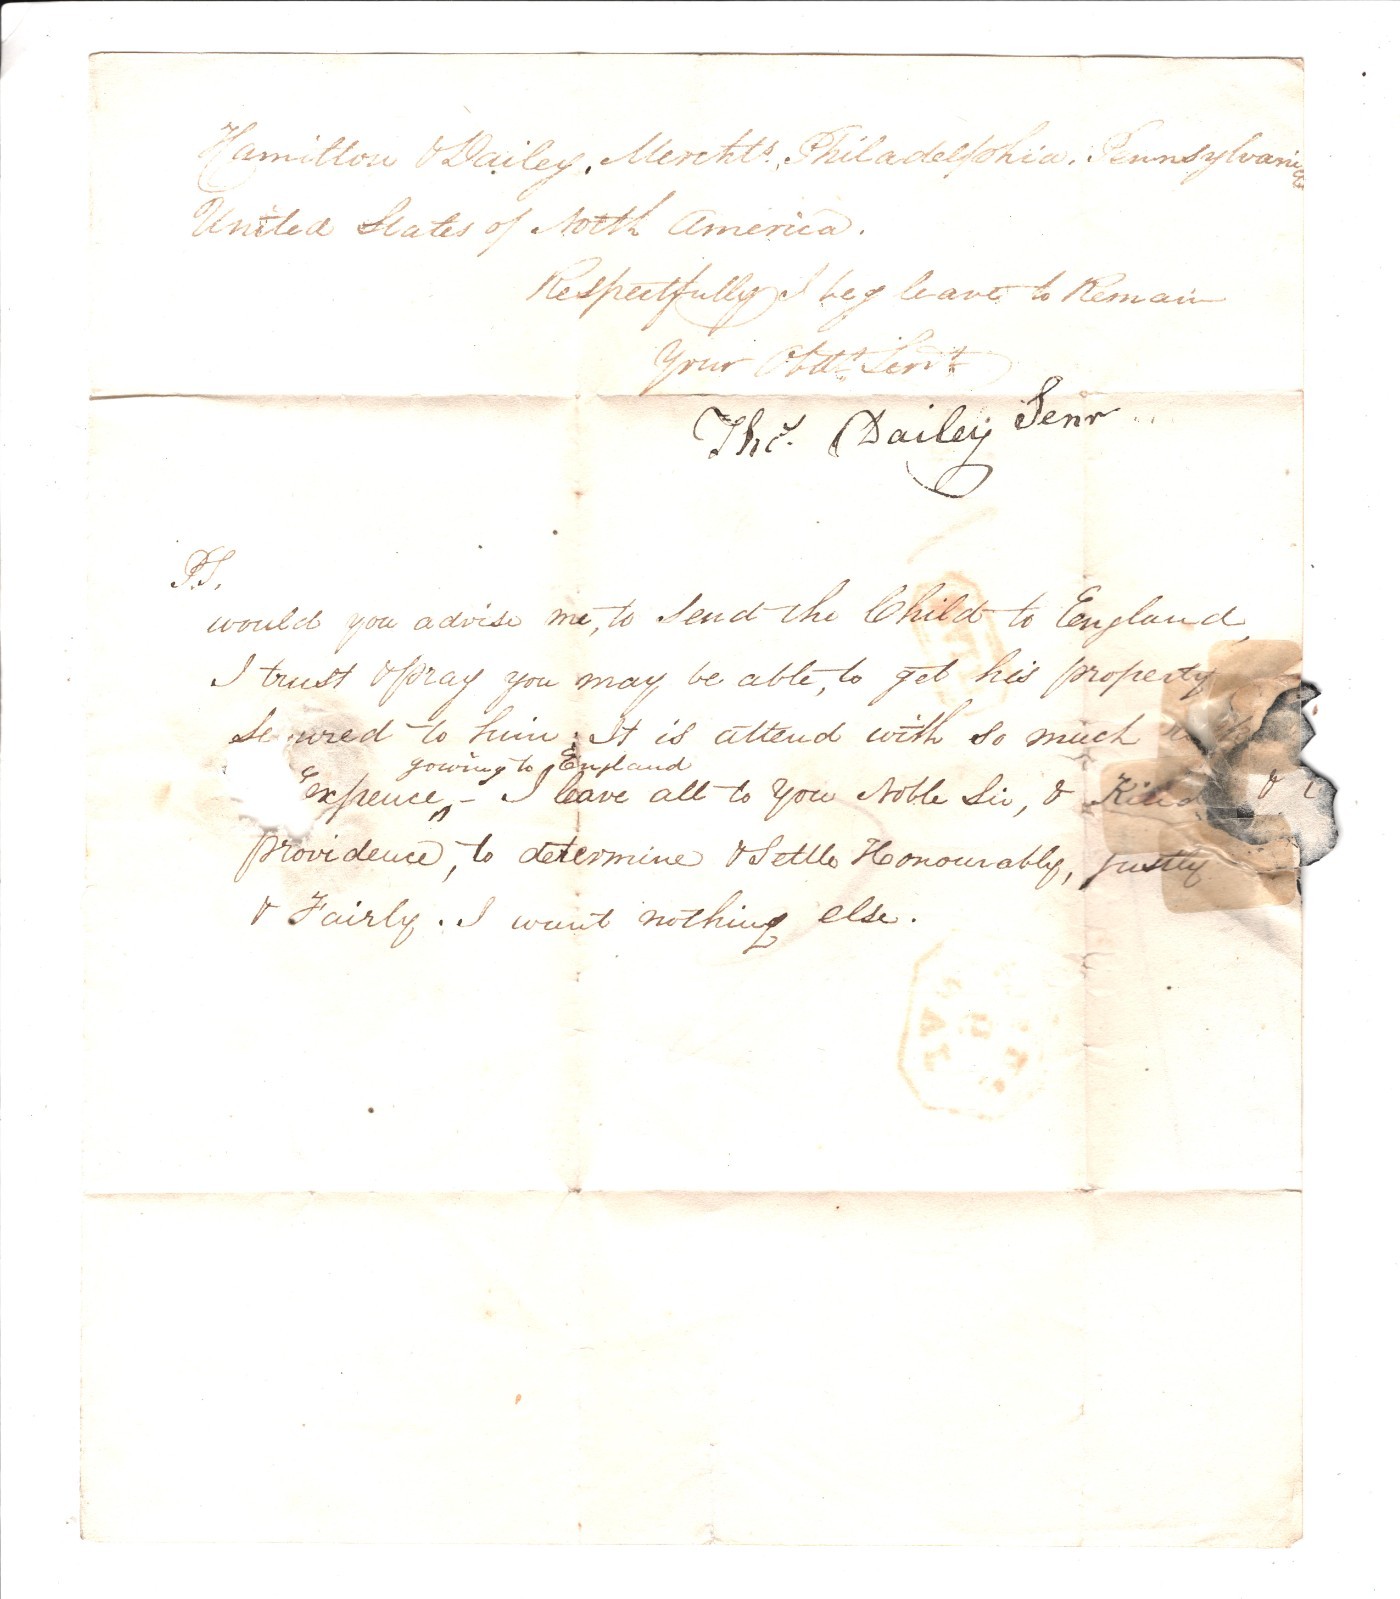 Hamilton & Dailey, Merchts. Philadelphia. Pennsylvania
United States of North America.
Respectfully I beg leave to Remain
Your Obdt. Servt
Thos. Dailey Senr
P.S.
would you advise me, to send the Child to England,
I trust & pray you may be able, to get his property
Se ured to him. It is attend with so much
gowing to England
Expence, - I leave all to You Noble Sir, & Kind &
providence, to determine & Settle Honourably, justly
& Fairly. I want nothing else.